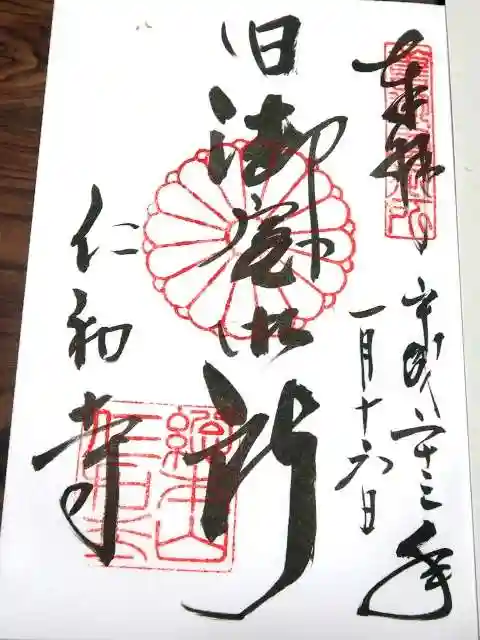 奉拝
平成二十三年
一月十六日
旧御室御所
仁和寺
總本山
仁和寺